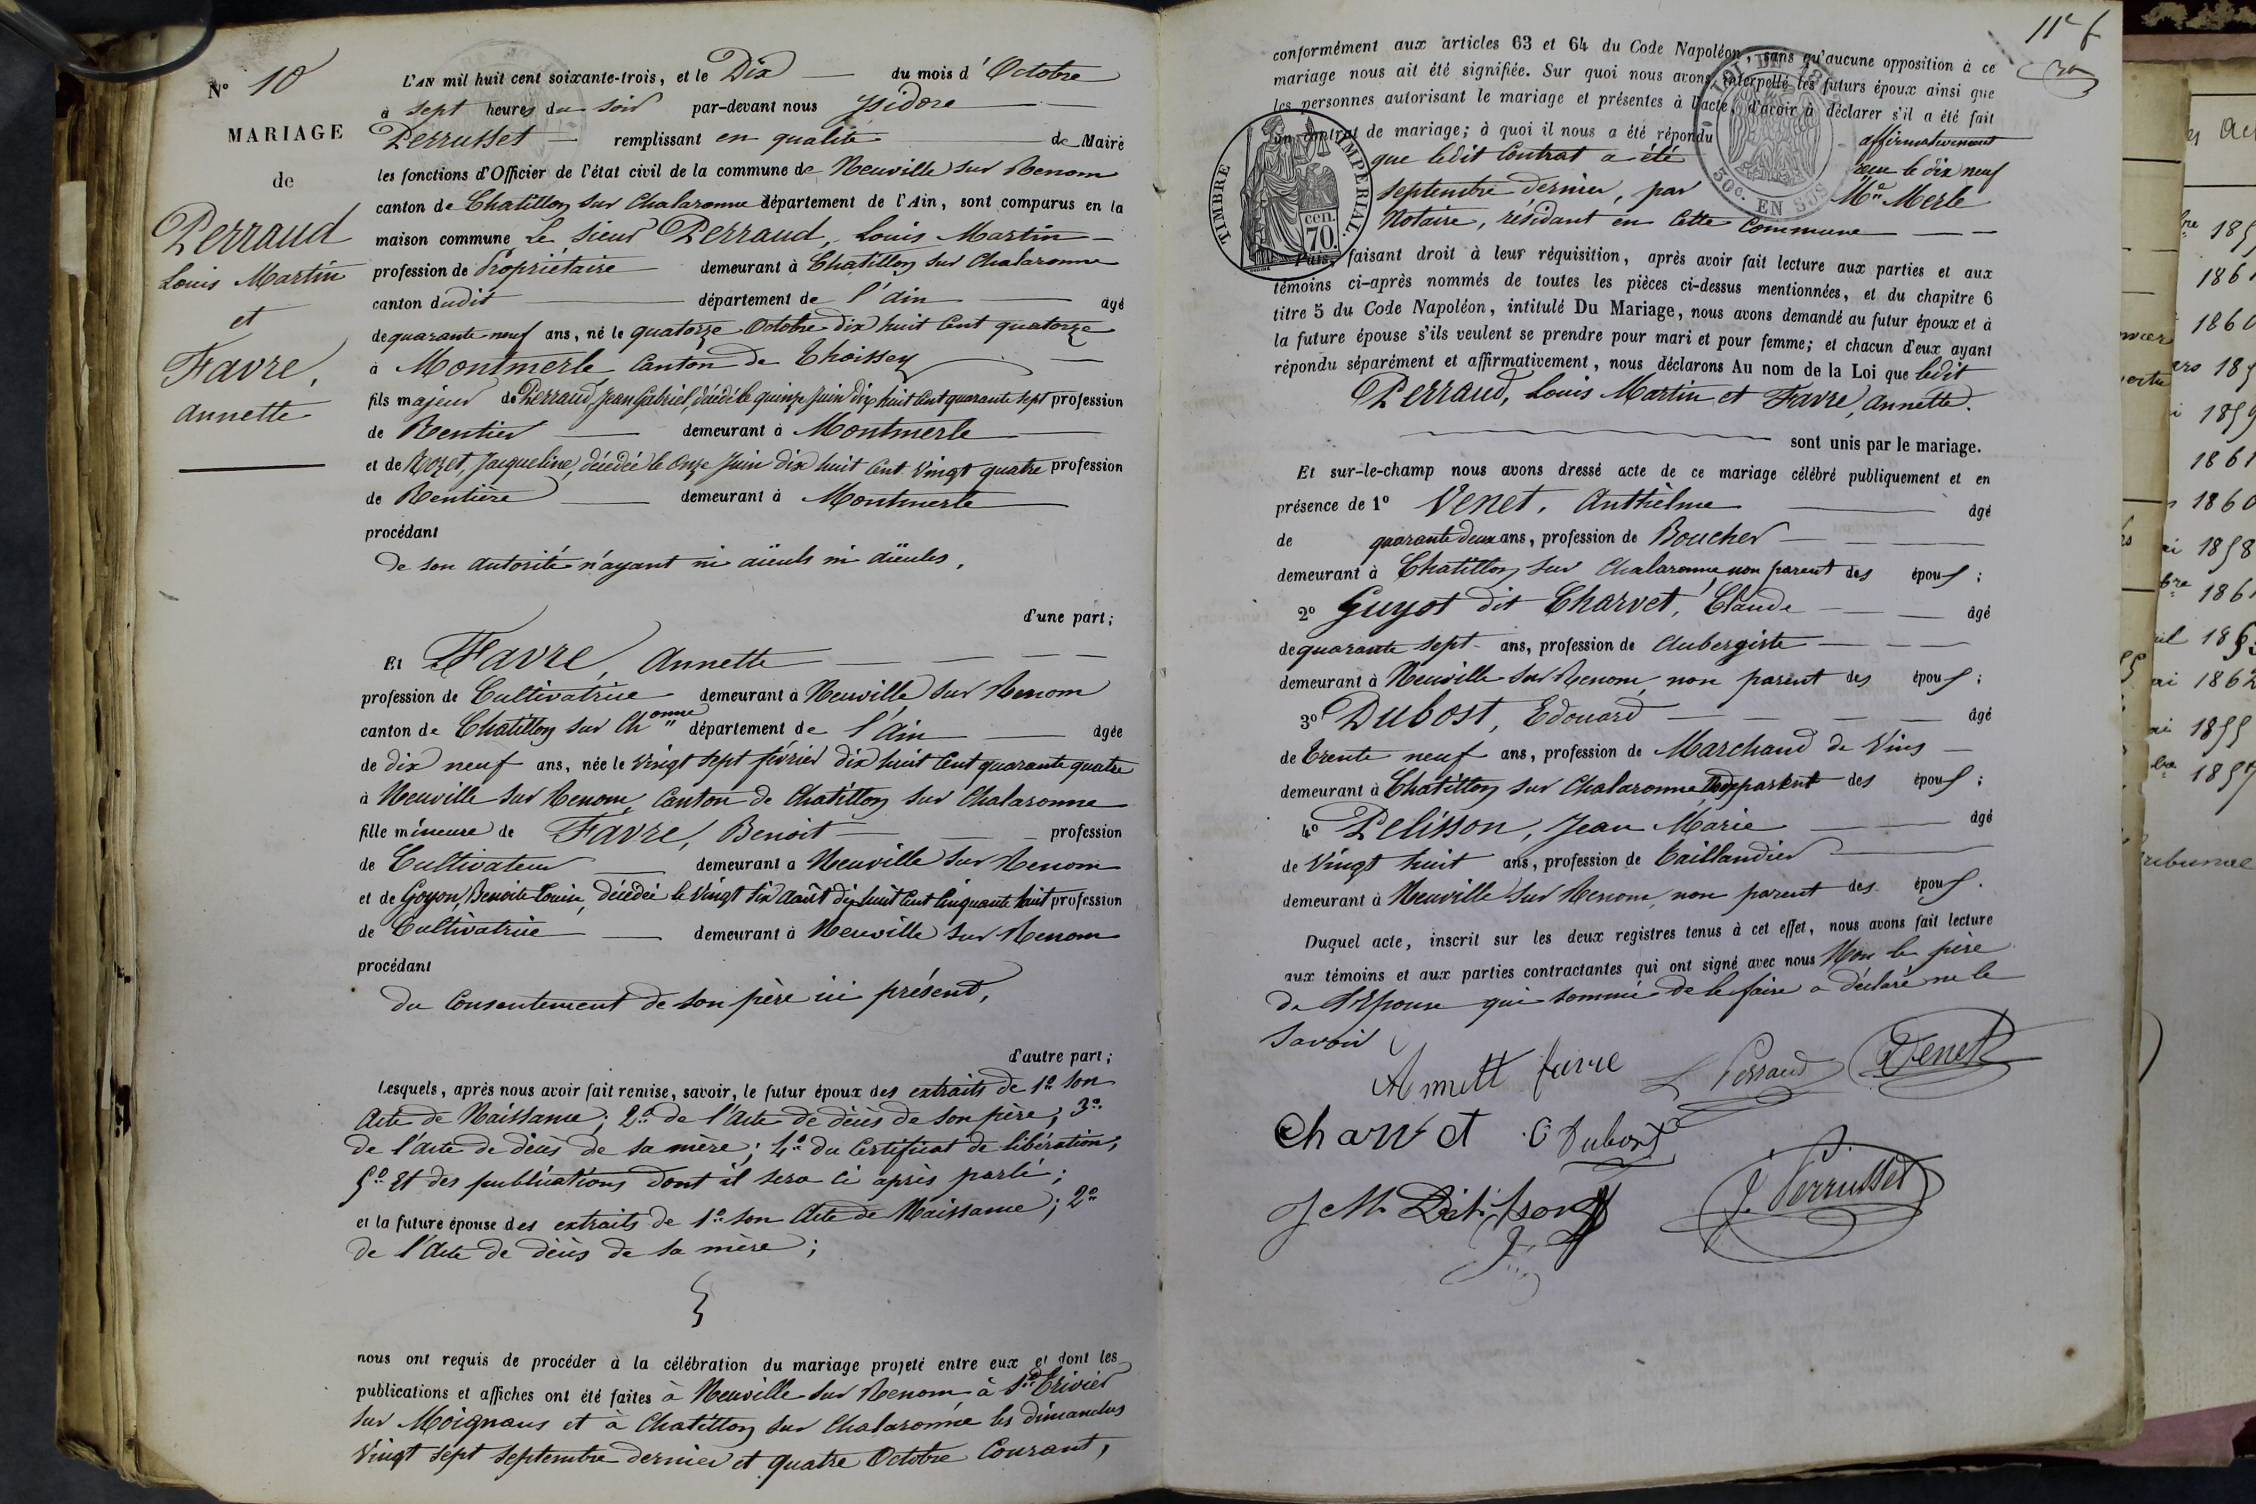 N° 10
MARIAGE
de
Perraud
Louis Martin
et
Favre,
Annette
L'AN mil huit cent soixante-trois, et le Dix du mois d'Octobre
à sept heures du soir par-devant nous Isidore
Perrusset remplissant en qualité de Maire
les fonctions d'Officier de l'état civil de la commune de Neuville sur Renom
canton de Chatillon sur Chalaronne département de l'Ain, sont comparus en la
maison commune Le sieur Perraud, Louis Martin
profession de Propriétaire demeurant à Chatillon sur Chalaronne
canton dudit département de l'ain âgé
de quarante neuf ans, né le quatorze Octobre dix huit cent quatorze
à Montmerle Canton de Thoissey
fils majeur de Perraud, Jean Gabriel, décédé le quinze juin dix huit cent quarante sept profession
de Rentier demeurant à Montmerle
et de Rozet, Jacqueline, décédée le onze Juin dix huit cent vingt quatre profession
de Rentière demeurant à Montmerle
procédant
de son autorité n'ayant ni aïeuls ni aïeules,
d'une part;
Et Favre, Annette
profession de Cultivatrice demeurant à Neuville sur Renom
canton de Chatillon sur Ch onne département de l'Ain âgée
de dix neuf ans, née le vingt sept février dix huit cent quarante quatre
à Neuville sur Renom, Canton de Chatillon sur Chalaronne
fille mineure de Favre, Benoit profession
de Cultivateur demeurant à Neuville sur Renom
et de Goyon, Benoite Louise, décédée le vingt six Août dix huit cent cinquante huit profession
de Cultivatrice demeurant à Neuville sur Renom
procédant
du Consentement de son père ici présent,
d'autre part;
Lesquels, après nous avoir fait remise, savoir, le futur époux des extraits de 1° son
Acte de Naissance; 2° de l'Acte de décès de son père; 3°
de l'acte de décès de sa mère; 4° du Certificat de libération;
5° Et des publications dont il sera ci après parlé;
et la future épouse des extraits de 1° son Acte de Naissance; 2°
de l'Acte de décès de sa mère;
nous ont requis de procéder à la célébration du mariage projeté entre eux et dont les
publications et affiches ont été faites à Neuville sur Renom à St Trivier
sur Moignans et à Chatillon sur Chalaronne les dimanches
vingt sept septembre dernier et quatre Octobre Courant,
11e f
conformément aux articles 63 et 64 du Code Napoléon, sans qu'aucune opposition à ce
mariage nous ait été signifiée. Sur quoi nous avons interpellé les futurs époux ainsi que
les personnes autorisant le mariage et présentes à l'acte, d'avoir à déclarer s'il a été fait
un contrat de mariage; à quoi il nous a été répondu affirmativement
que ledit Contrat a été reçu le dix neuf
septembre dernier, par Me Merle
Notaire, résidant en cette Commune
TIMBRE IMPÉRIAL.
cen.
70.
50c. EN SUS
Puis, faisant droit à leur réquisition, après avoir fait lecture aux parties et aux
témoins ci-après nommés de toutes les pièces ci-dessus mentionnées, et du chapitre 6
titre 5 du Code Napoléon, intitulé Du Mariage, nous avons demandé au futur époux et à
la future épouse s'ils veulent se prendre pour mari et pour femme; et chacun d'eux ayant
répondu séparément et affirmativement, nous déclarons Au nom de la Loi que ledit
Perraud, Louis Martin et Favre, Annette.
sont unis par le mariage.
Et sur-le-champ nous avons dressé acte de ce mariage célébré publiquement et en
présence de 1° Venet, Anthelme âgé
de quarante deux ans, profession de Boucher
demeurant à Chatillon sur Chalaronne, non parent des époux;
2° Guyot dit Charvet, Claude âgé
de quarante sept ans, profession de Aubergiste
demeurant à Neuville sur Renom, non parent des époux;
3° Dubost, Edouard âgé
de trente neuf ans, profession de Marchand de Vins
demeurant à Chatillon sur Chalaronne non parent des époux;
4° Pelisson, Jean Marie âgé
de vingt huit ans, profession de taillandier
demeurant à Neuville sur Renom, non parent des époux.
Duquel acte, inscrit sur les deux registres tenus à cet effet, nous avons fait lecture
aux témoins et aux parties contractantes qui ont signé avec nous Non le père
de l'Epouse qui sommé de le faire a déclaré ne le
savoir
Annett favre L Perraud Venet
Charvet E Dubost
J M Pelisson J. Perrusset
1861
1860
1859
1861
1860
1858
1861
1862
1855
1857